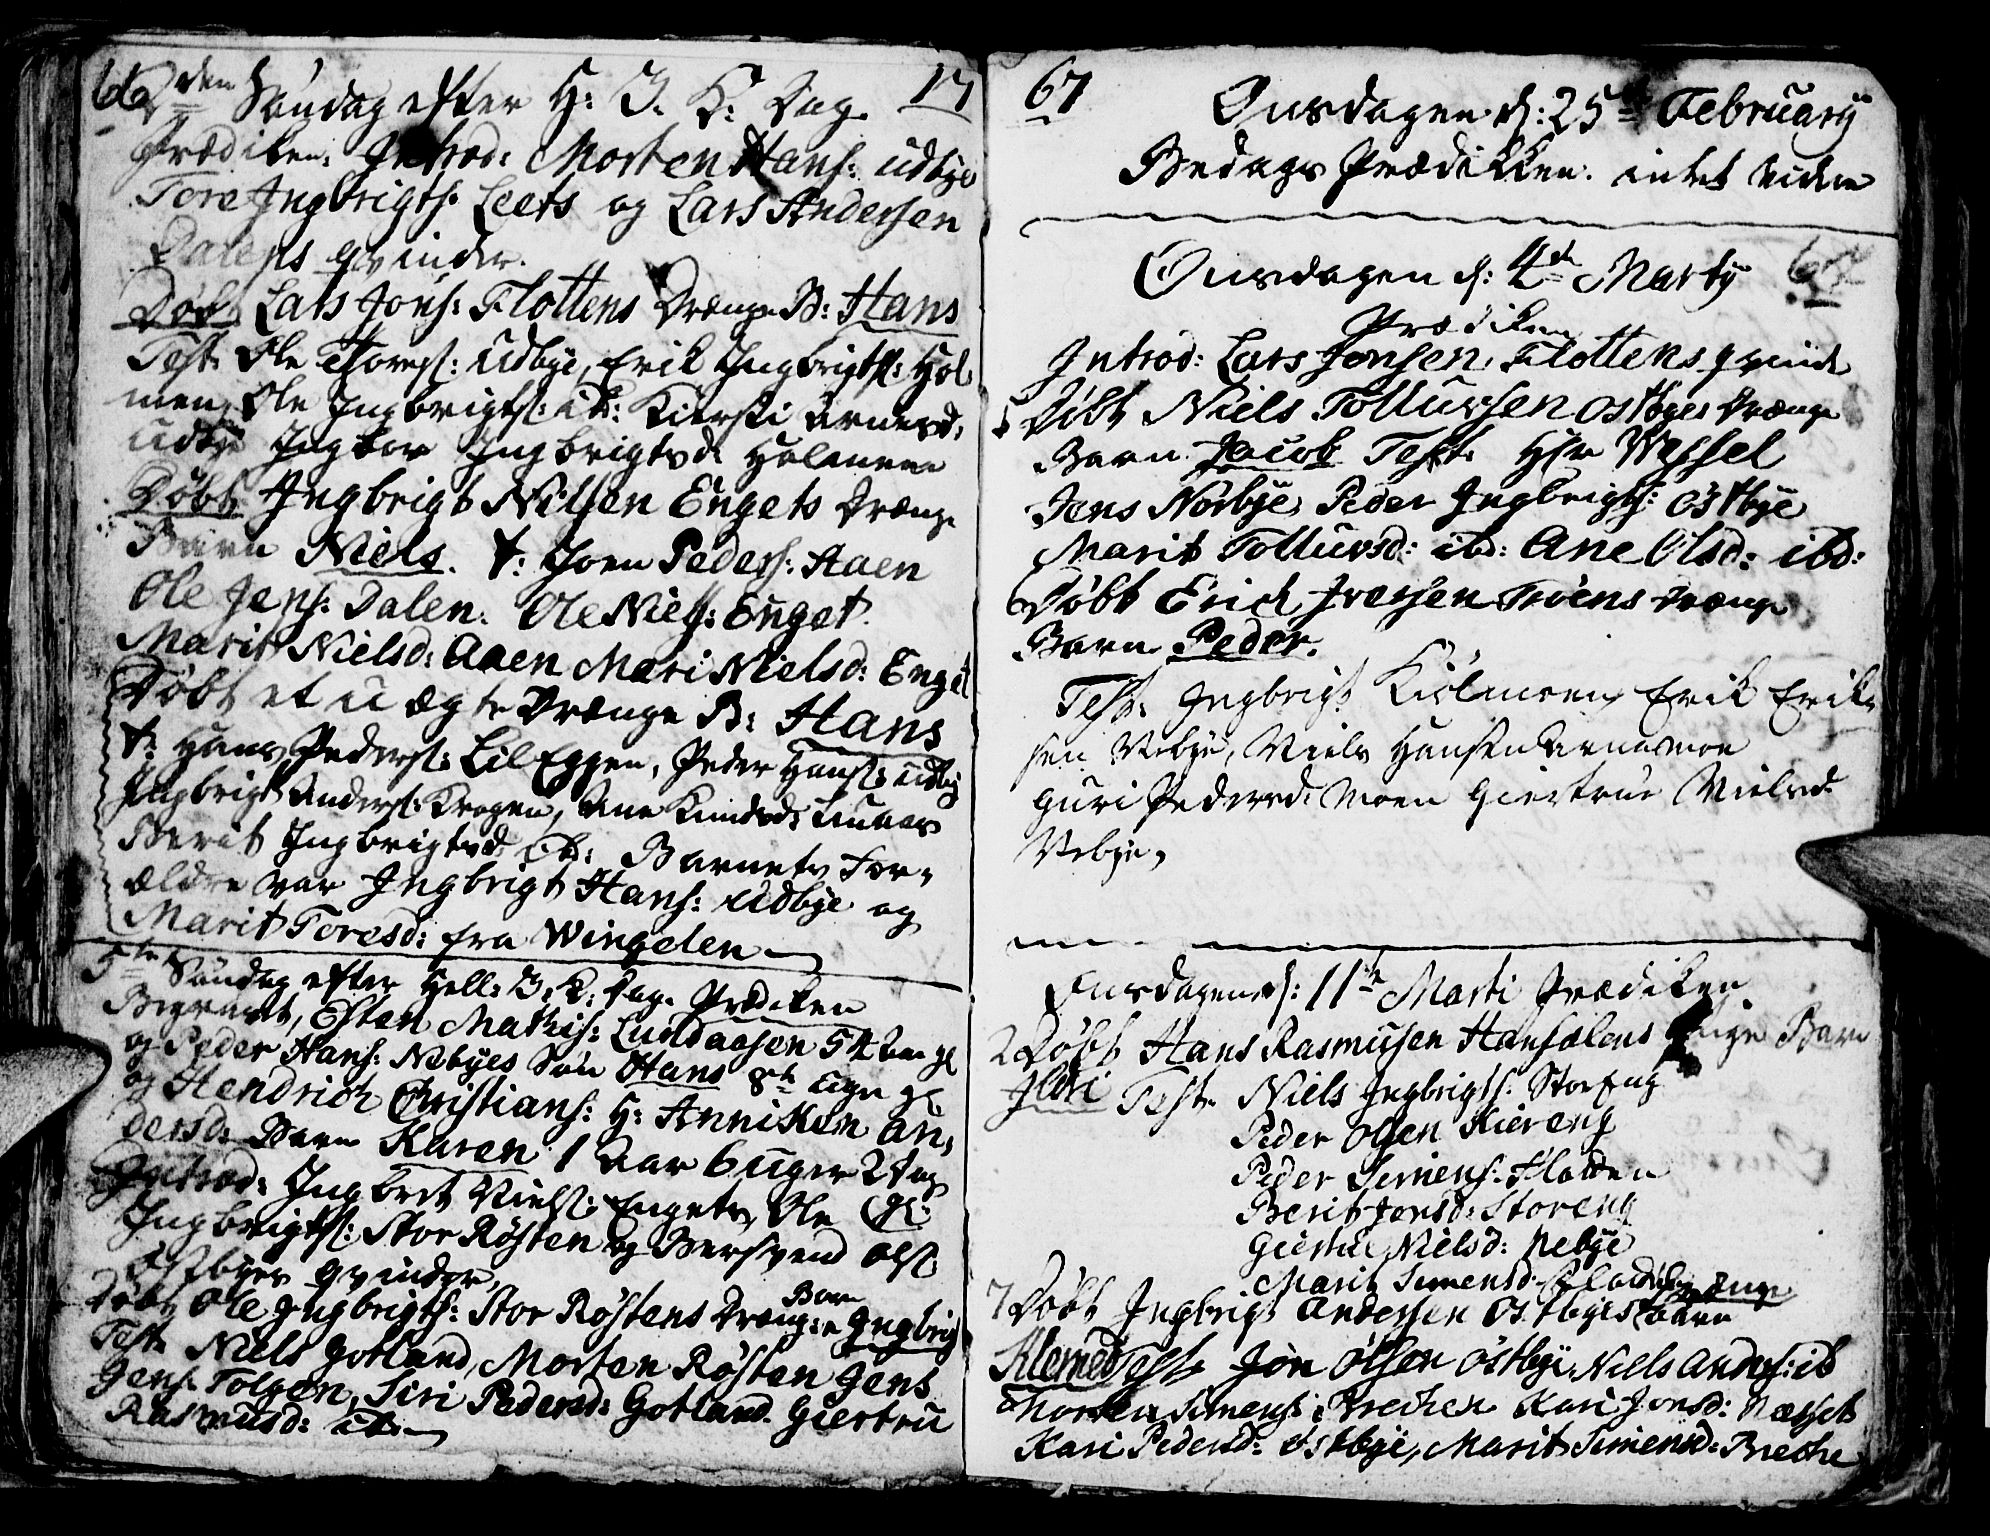 66 den Søndag efter H: 3. K: Dag. 17
Prædiken: Introd: Morten Hans: udbye
Tore Jngbrigts: Leets og Lars Andersen
Dalens qvinder.
Døbt Lars Jons: Flottens Drænge B: Hans
Test: Ole Thoress: udbye, Erik Jngbrigts: Hol
men, Ole Jngbrigts: ib: Kiersti Arnesd:
udbye Jngbor Jngbrigtsd: Holmene
Døbt Jngbrigt Nilsen Engets Drænge
Barn Niels. T: Joen Peders: Aaen
Ole Jens: Dalen. Ole Niels: Enget.
Marit Nielsd: Aaen Mari Nielsd: Enget
Døbt et u ægte Drænge B: Hans
T: Hans Peders: Lil Eggen, Peder Hans: udbye
Jngbrigt Anders: Krogen, Ane Knudsd:
Berit Jngbrigtsd: ib: Barnets For-
ældre var Jngbrigt Hans: udbye og
Marit Toresd: fra Wingelen
5te Søndag efter Hell: 3. K: Dag. Prædiken
Begravet, Esten Mathis: Lundaasen 54 Aar gl
og Peder Hans: Nebyes Søn Hans 8te uger gl
og Hendrich Christians: H: Anniken An,
dersd: Barn Karen 1 Aar 6 uger 2 Dag
Introd: Jngbret Niels: Engets, Ole
Jngbrigts: Stor Røsten og Bersvend Ols:
Østbyes qvinder,
Døbt Ole Jngbrigts: Stor Røstens Drænge Barn Jngbrigt
Test: Niels Gotland, Morten Røsten Jens
Jens: Tolgen, Siri Pedersd: Gotland. Giertru
Rasmusd: ib:
67
Onsdagen d: 25de February
Bedags Prædikken: intet videre
Onsdagen d: 4de Marty 67
Prædiken
Introd: Lars Jonsen Flottens qvinde
5 Døbt Niels Tollufsen Ostbyes Drænge
Barn Jacob Test: Hr Wessel
Jens Norbye, Peder Jngbrigts: Østbye
Marit Tollufsd: ibd: Ane Olsd: ibd:
6 Døbt Erich Iversen Troens Drænge
Barn Peder.
Test: Jngbrigt Kiølmoen, Erik Erik
sen Nebye, Niels Hansen Arnemoe
Guri Pedersd: Moen Giertrue Nielsd:
Nebye,
Onsdagen d: 11te Marti Prædiken
2 Døbt Hans Rasmussen Hansælens Pige Barn
Ildri Test: Niels Jngbrigts: Storeng
Peder Olsen Kiereng
Peder Simens: Floden
Berit Jonsd: Storeng
Giertru Nielsd: Nebye
Marit Simensd:
7 Døbt Jngbrigt Andersen Ostbyes Drænge Barn
Klemed Test: Jon Olsen Østbye, Niels Anders: ib
Morten Simens: Brechen Kari Jonsd: Næsset
Kari Pedersd: Østbye, Marit Simensd: Breche